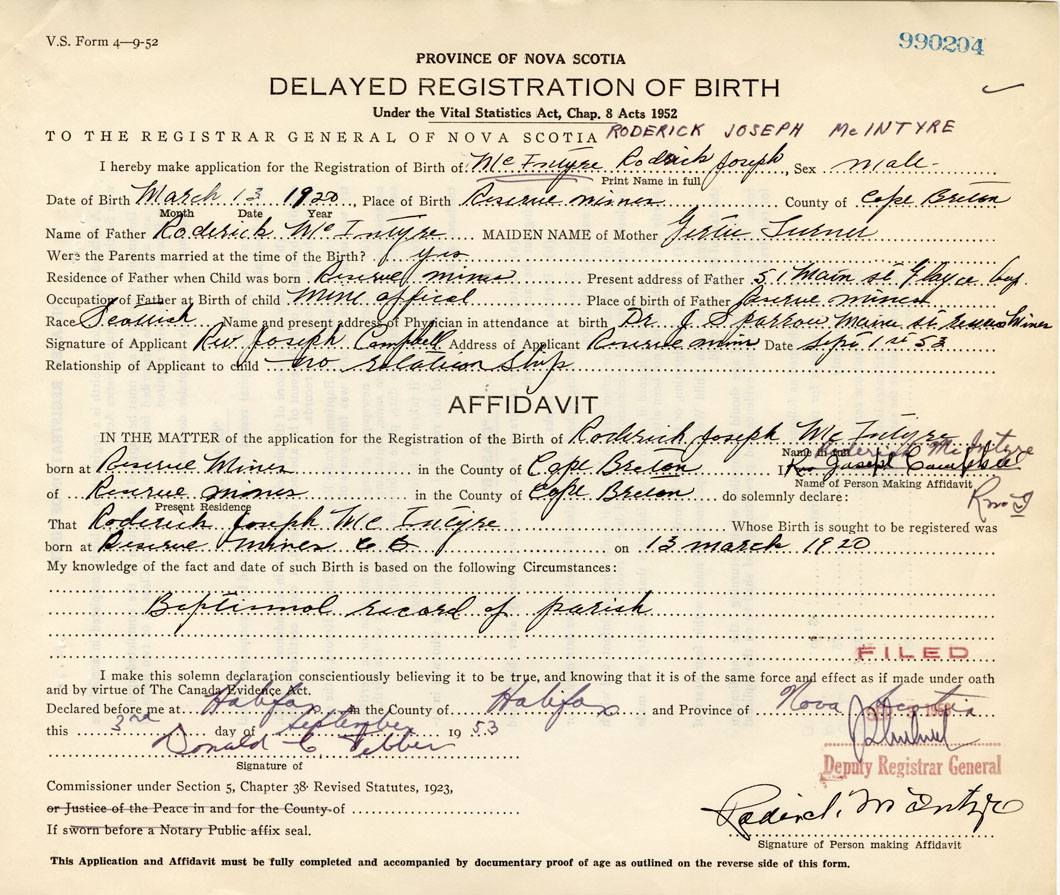 V.S. Form 4—9-52
990204
PROVINCE OF NOVA SCOTIA
DELAYED REGISTRATION OF BIRTH
Under the Vital Statistics Act, Chap. 8 Acts 1952
TO THE REGISTRAR GENERAL OF NOVA SCOTIA RODERICK JOSEPH McINTYRE
I hereby make application for the Registration of Birth of McIntyre Roderick Joseph, Sex male
Print Name in full
Date of Birth March 13 1920, Place of Birth Reserve mines County of Cape Breton
Month Date Year
Name of Father Roderick McIntyre MAIDEN NAME of Mother Gertie Turner
Were the Parents married at the time of the Birth? yes
Residence of Father when Child was born Reserve mines Present address of Father 51 Main st Glayce bay.
Occupation of Father at Birth of child mine offical Place of birth of Father Reserve mines
Race Scottish Name and present address of Physician in attendance at birth Dr. J Sparrow Main st reserve Mines
Signature of Applicant Rev Joseph Campbell Address of Applicant Reserve mines Date Sept 1st 53
Relationship of Applicant to child no relation Ship
AFFIDAVIT
IN THE MATTER of the application for the Registration of the Birth of Roderick Joseph McIntyre
Name in full
Roderick McIntyre
born at Reserve Mines in the County of Cape Breton I, Rev Joseph Campbell
Name of Person Making Affidavit
of Reserve mines in the County of Cape Breton do solemnly declare:
Present Residence
That Roderick Joseph McIntyre Whose Birth is sought to be registered was
born at Reserve mines C B on 13 march 1920
My knowledge of the fact and date of such Birth is based on the following Circumstances:
Baptismal record of parish
FILED
I make this solemn declaration conscientiously believing it to be true, and knowing that it is of the same force and effect as if made under oath
and by virtue of The Canada Evidence Act.
Declared before me at Halifax in the County of Halifax and Province of Nova Scotia
this 3rd day of September 1953
Donald C
Signature of
Deputy Registrar General
Commissioner under Section 5, Chapter 38 Revised Statutes, 1923,
or Justice of the Peace in and for the County of
If sworn before a Notary Public affix seal.
Roderick McIntyre
Signature of Person making Affidavit
This Application and Affidavit must be fully completed and accompanied by documentary proof of age as outlined on the reverse side of this form.